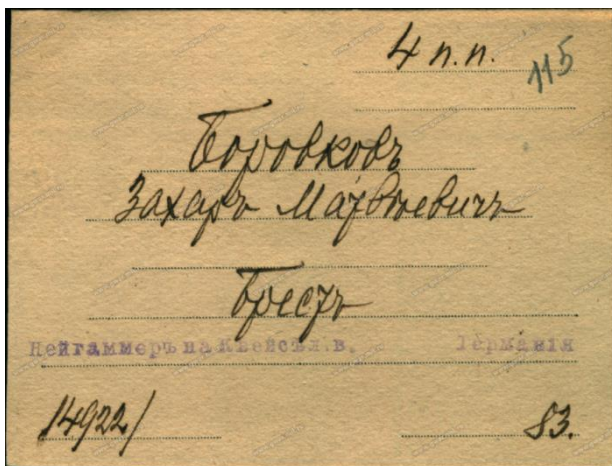 4 п.п.
115
Боровковъ
Захаръ Матвѣевичъ
Брестъ
Нейгаммеръ на Квейсѣ л.в. Германія
14922/ 83.